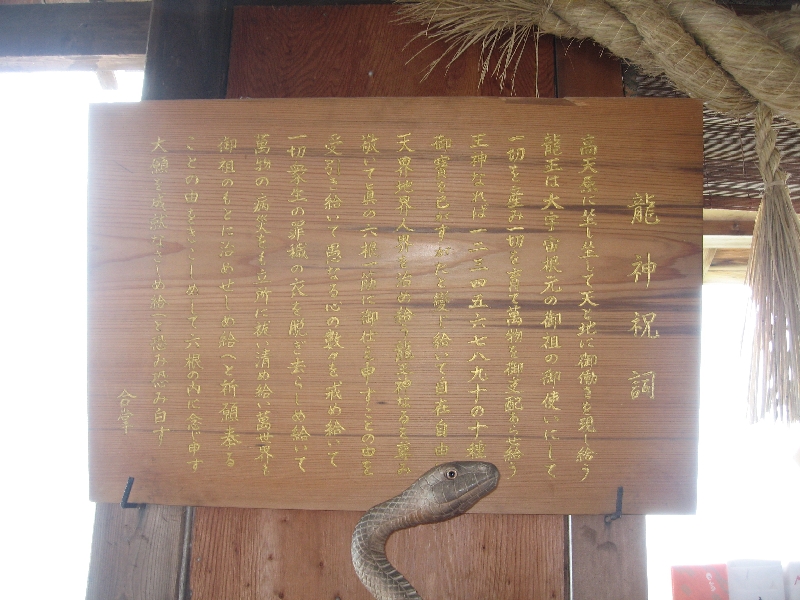 龍神祝詞
高天原に坐し坐して天と地に御働きを現し給う
龍王は大宇宙根元の御祖の御使いにして
一切を産み一切を育て萬物を御支配あらせ給う
王神なれば一二三四五六七八九十の十種の
御寶を己がすがたと變じ給いて自在自由に
天界地界人界を治め給う龍王神なるを尊み
敬いて眞の六根一筋に御仕え申すことの由を
受引き給いて愚なる心の數々を戒め給いて
一切衆生の罪穢の衣を脱ぎ去らしめ給いて
萬物の病災をも立所に祓い清め給い萬世界も
御祖のもとに治めせしめ給へと祈願奉る
ことの由をきこしめして六根の内に念じ申す
大願を成就なさしめ給へと恐み恐み白す
合掌